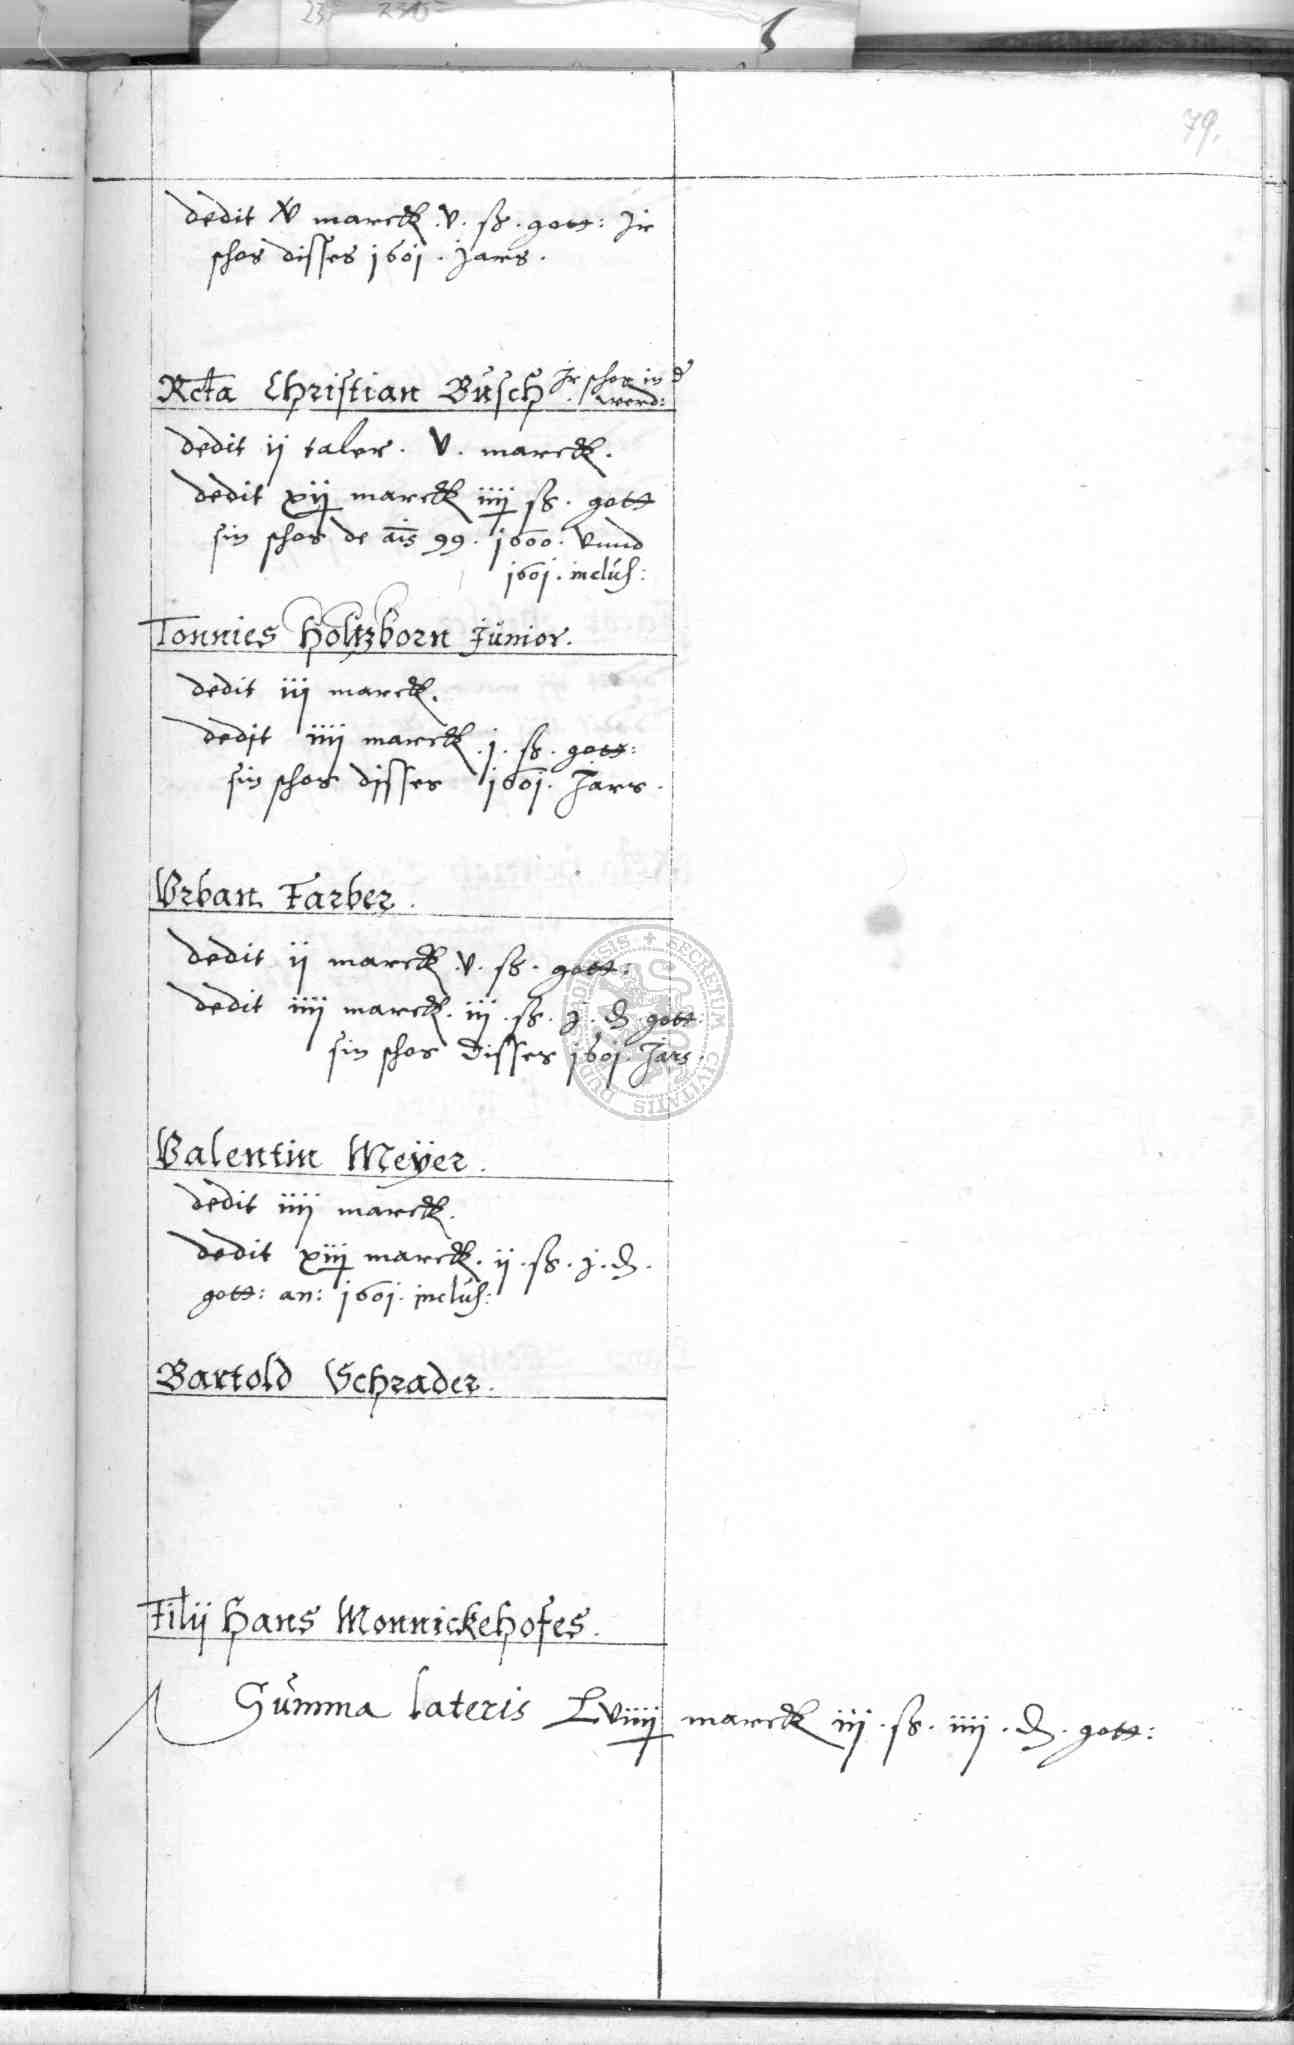 79.
dedit XV marck. v. ß. gott: Jr
schos disses 1601. Jars.
Rcta Christian Busch Jr schos in d
werd:
dedit ij taler. V. marck.
dedit xij marck iiij ß. gott
sin schos de ais 99. 1600. vnnd
1601. inclus:
Tonnies Holtzborn Junior.
dedit iij marck.
dedit iiij marck. j. ß. gott:
sin schos disses 1601. Jars.
Vrban Farber.
dedit ij marck. v. ß. gott:
dedit iiij marck. iij. ß. j. d. gott:
sin schos disses 1601. Jars.
Valentin Meÿer.
dedit iiij marck.
dedit xiij marck. ij. ß. j. d.
gott: an: 1601. inclus:
Bartold Schrader.
Filij Hans Monnickehofes.
Summa lateris Lviiij marck iij. ß. iiij. d. gott:
SECRETUM CIVITATIS